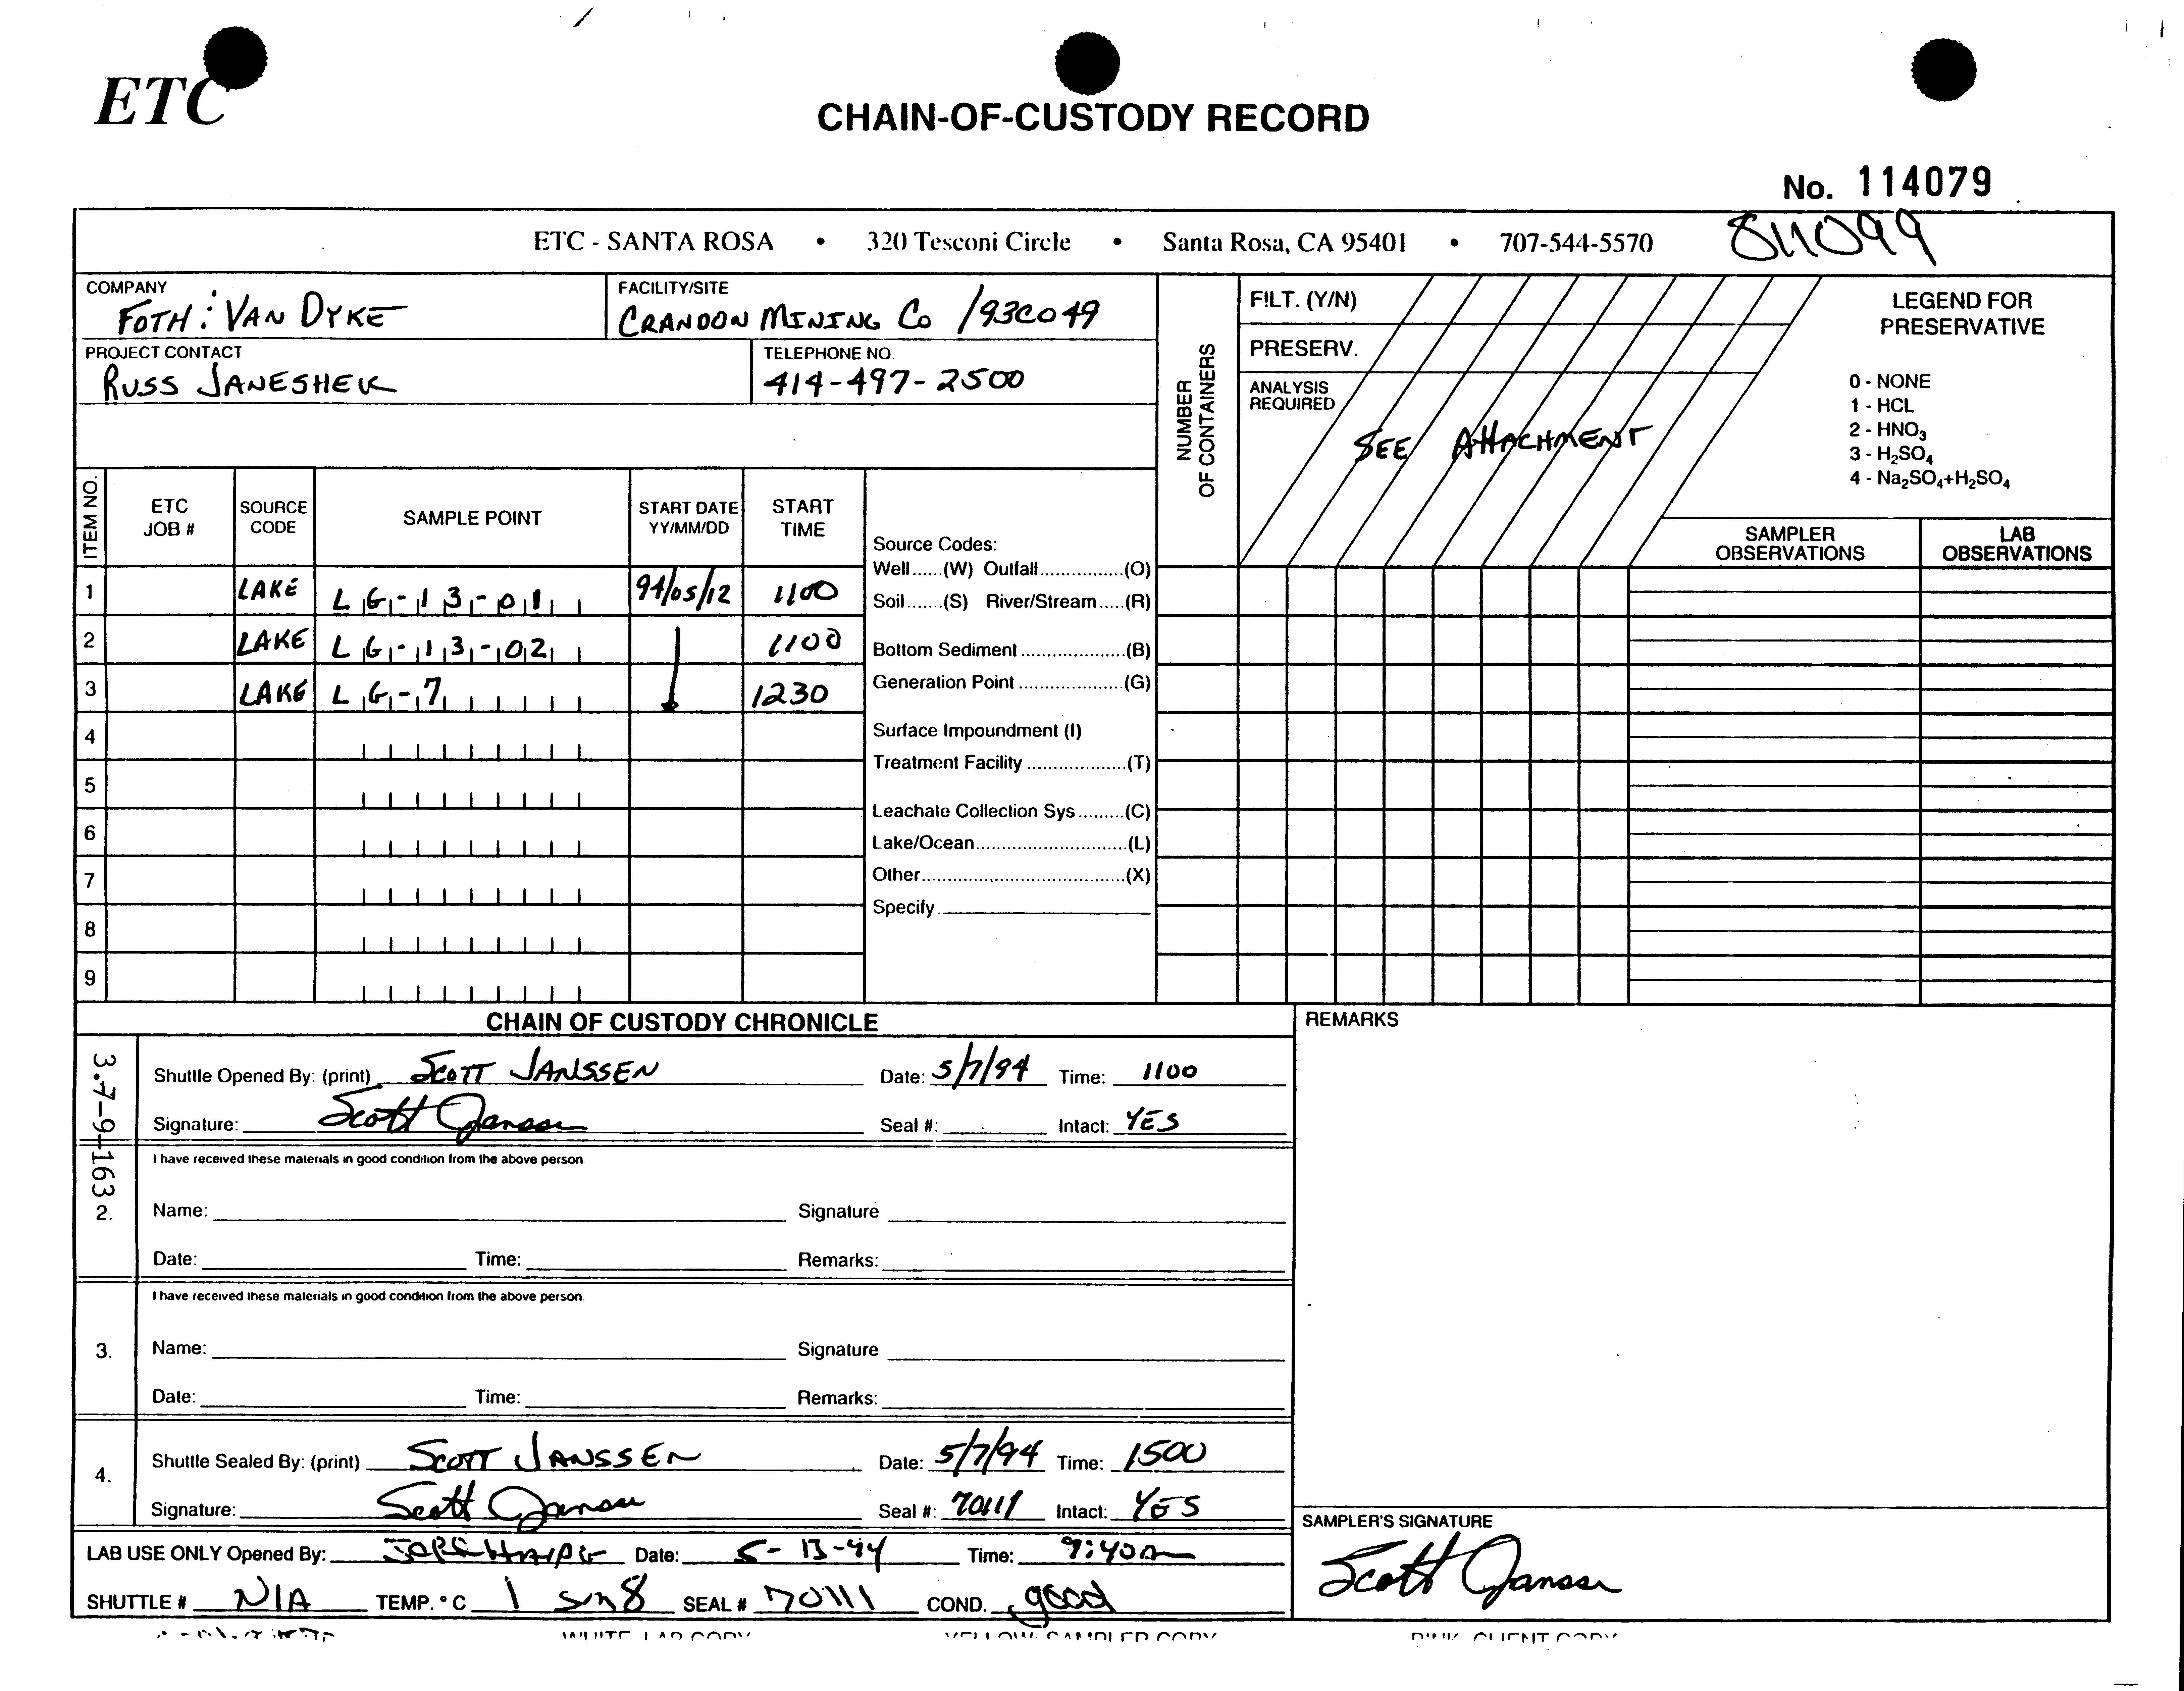 ETC
CHAIN-OF-CUSTODY RECORD
No. 114079
ETC - SANTA ROSA • 320 Tesconi Circle • Santa Rosa, CA 95401 • 707-544-5570
COMPANY
FOTH : VAN DYKE
FACILITY/SITE
CRANDON MINING CO /93C049
PROJECT CONTACT
RUSS JANESHEK
TELEPHONE NO.
414-497-2500
NUMBER OF CONTAINERS
FILT. (Y/N)
PRESERV.
ANALYSIS REQUIRED
SEE ATTACHMENT
LEGEND FOR
PRESERVATIVE
0 - NONE
1 - HCL
2 - HNO3
3 - H2SO4
4 - Na2SO4+H2SO4
SAMPLER OBSERVATIONS
LAB OBSERVATIONS
ITEM NO.
ETC JOB #
SOURCE CODE
SAMPLE POINT
START DATE YY/MM/DD
START TIME
1 LAKE LG-13-01 94/05/12 1100
2 LAKE LG-13-02 1100
3 LAKE LG-7 1230
4
5
6
7
8
9
Source Codes:
Well......(W) Outfall...............(O)
Soil.......(S) River/Stream.....(R)
Bottom Sediment ...................(B)
Generation Point ...................(G)
Surface Impoundment (I)
Treatment Facility ..................(T)
Leachate Collection Sys.........(C)
Lake/Ocean............................(L)
Other......................................(X)
Specify
CHAIN OF CUSTODY CHRONICLE
REMARKS
3.7-9-163
Shuttle Opened By: (print) SCOTT JANSSEN Date: 5/7/94 Time: 1100
Signature: Scott Janssen Seal #: Intact: YES
I have received these materials in good condition from the above person.
2. Name: Signature
Date: Time: Remarks:
I have received these materials in good condition from the above person.
3. Name: Signature
Date: Time: Remarks:
4. Shuttle Sealed By: (print) SCOTT JANSSEN Date: 5/7/94 Time: 1500
Signature: Scott Janssen Seal #: 70111 Intact: YES
SAMPLER'S SIGNATURE
Scott Janssen
LAB USE ONLY Opened By: Date: 5-13-94 Time: 9:40am
SHUTTLE # N/A TEMP. °C 1 SEAL # 70111 COND. good
WHITE LAB COPY YELLOW SAMPLER COPY PINK CLIENT COPY